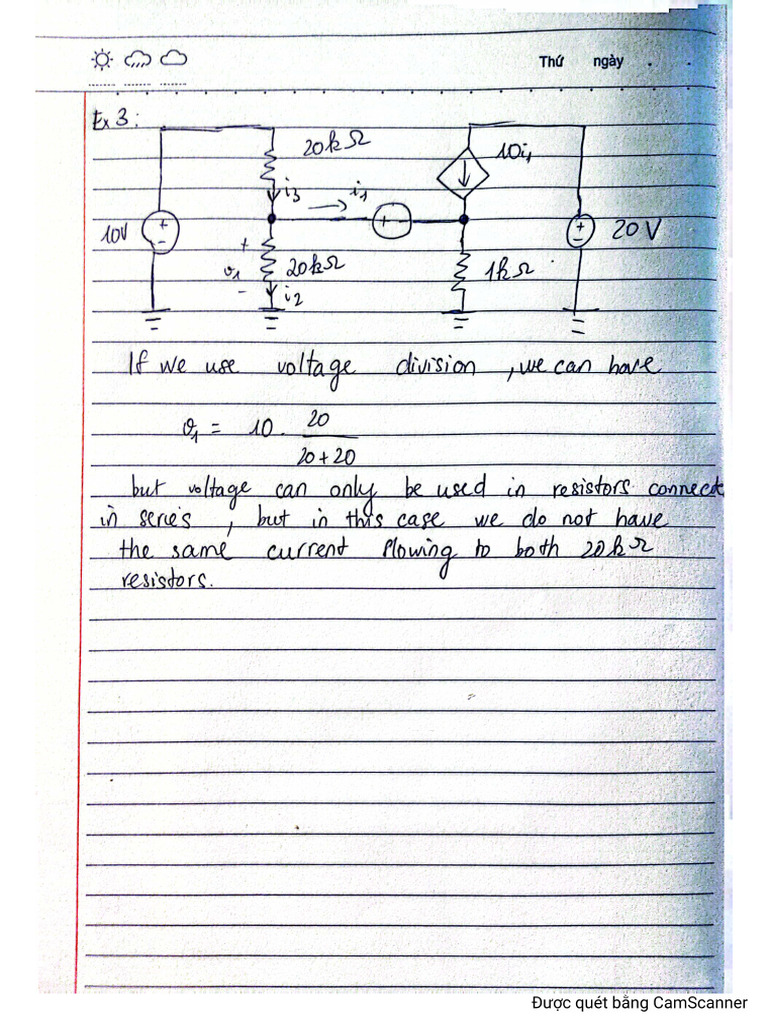 Thứ ngày
Ex 3:
20kΩ
10i₁
i₃
i₁
+
-
10V
+ -
+
-
20V
+
v₁
-
20kΩ
i₂
1kΩ
If we use voltage division, we can have
v₁ = 10 . 20
20+20
but voltage can only be used in resistors connect
in series, but in this case we do not have
the same current flowing to both 20kΩ
resistors.
Được quét bằng CamScanner